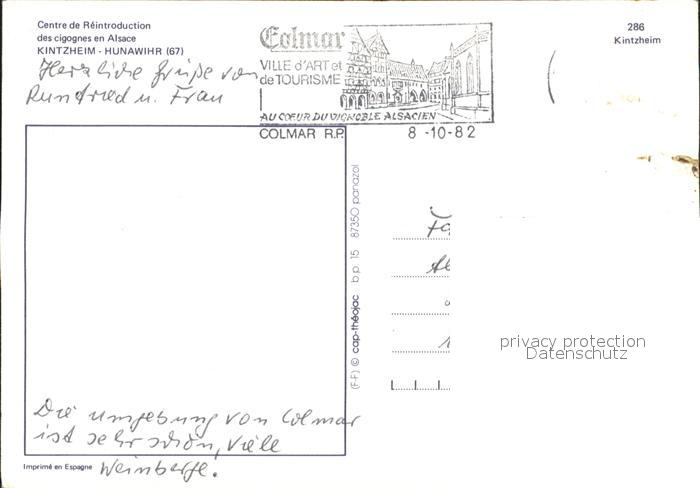 Centre de Réintroduction
des cigognes en Alsace
KINTZHEIM - HUNAWIHR (67)
Herzliche Grüße von
und Frau
Colmar
VILLE d'ART et
de TOURISME
AU COEUR DU VIGNOBLE ALSACIEN
COLMAR R.P.
8 -10-82
286
Kintzheim
(F-F) © cap-théojac b.p. 15 87350 panazol
privacy protection
Datenschutz
Die Umgebung von Colmar
ist sehr schön, viele
Weinberge.
Imprimé en Espagne